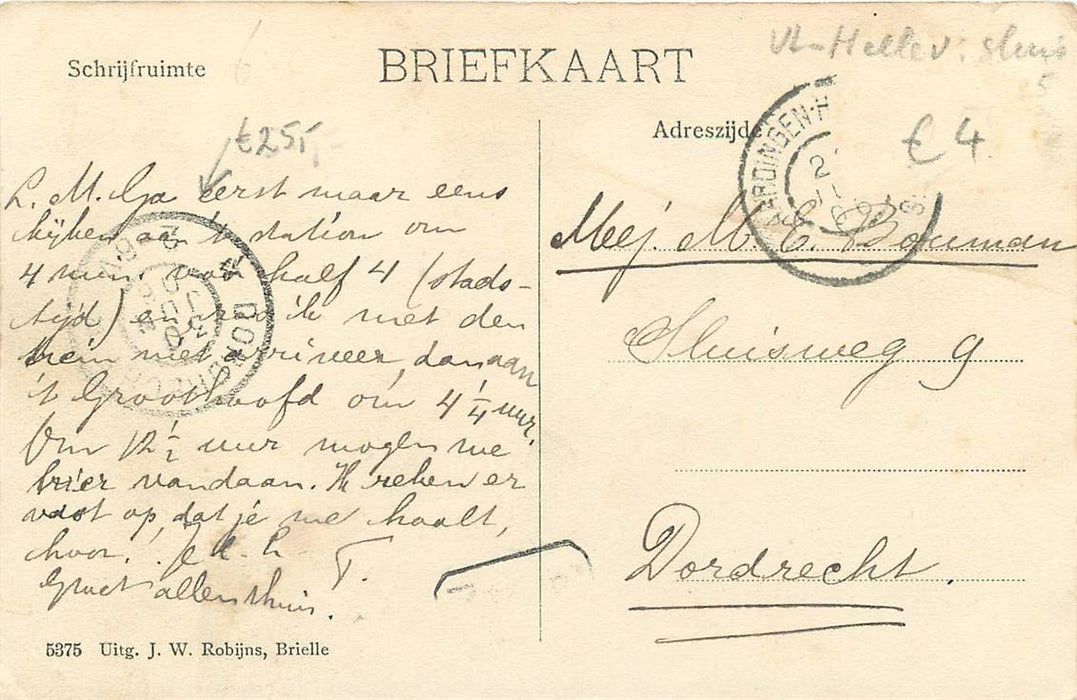 Schrijfruimte
BRIEFKAART
Hellev. sluis
5
6
€25,-
Adreszijde
€ 4
L. M. Ga eerst maar eens
kijken aan 't station om
4 min. voor half 4 (stads-
tijd) en zoo ik met den
trein niet arriveer, dan aan
't Groothoofd om 4 1/4 uur.
Om 12 1/2 uur mogen we
hier vandaan. Ik reken er
vast op, dat je me haalt,
hoor!
T.
Groet allen thuis.
Mej. M. C. Bouman
Sluisweg 9
Dordrecht.
5375 Uitg. J. W. Robijns, Brielle